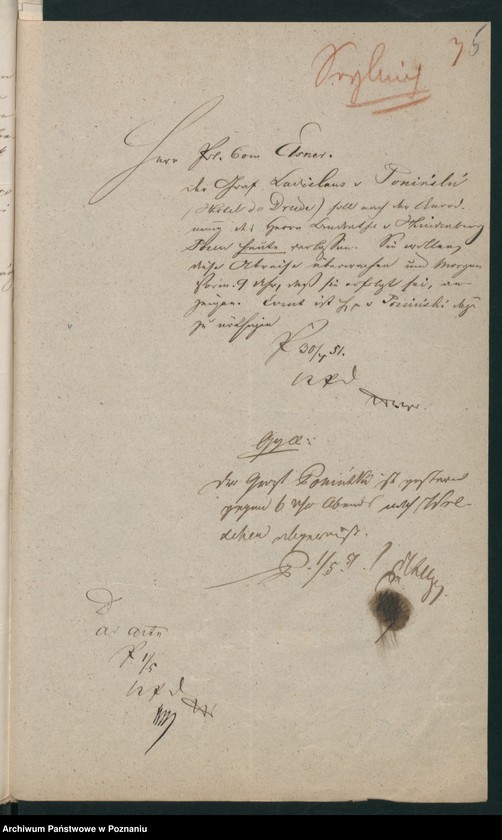 75
Herr Pol. Com Elsner.
Der Graf Ladislaus v Poninski
(Hotel de Dresde) soll nach der Anord-
nung des Herrn Landraths v Hindenburg
heute verlassen. Sie wollen
diese Abreise überwachen und morgen
Vorm. 9 Uhr, daß sie erfolgt sei, an-
zeigen. Event ist H v Poninski dazu
zu nöthigen
P 30/4 51.
K P D
Der Graf Poninski ist gestern
gegen 6 Uhr Abends nach
abgereist.
P. 1/5 51
ad acta
P 1/5
K P D
Archiwum Państwowe w Poznaniu